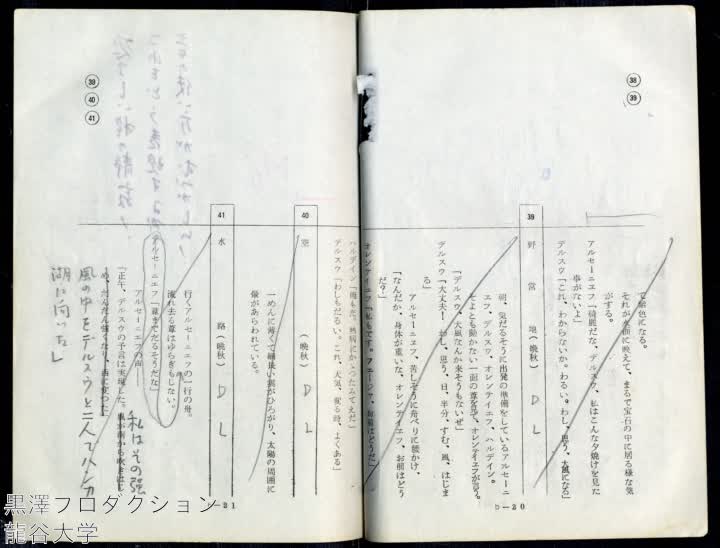 ㊳
㊴
て飴色になる。
それが水面に映えて、まるで宝石の中に居る様な気
がする。
アルセーニエフ「綺麗だな、デルスウ、私はこんな夕焼けを見た
事がないよ」
デルスウ「これ、わからないか。わるい。わし、思う、大風になる」
39 野営地(晩秋) D L
朝、気だるそうに出発の準備をしているアルセーニ
エフ、デルスウ、オレンテイエフ、ハルデイン。
そよとも動かない一面の葦を見て、オレンテイエフが言う。
「デルスウ、大風なんか来そうもないぜ」
デルスウ「大丈夫! わし、思う、日、半分、すむ、風、はじま
る」
アルセーニエフ、苦しそうに舟べりに腰かけ、
「なんだか、身体が重いな、オレンテイエフ、お前はどう
だ?」
オレンテイエフ「私もです。フエージア、お前はどうだ」
ハルデイン「俺もだ。熱病にかかったみてえだ」
デルスウ「わしもだるい。これ、天気、変る時、よくある」
b-20
㊴
㊵
㊶
40 空 (晩秋) D L
一めんに薄くて細長い雲がひろがり、太陽の周囲に
暈があらわれている。
41 水路(晩秋) D L
行くアルセーニエフの一行の舟。
流れ去る葦はゆらぎもしない。
アルセーニエフ「葦までだるそうだな」
アルセーニエフの声
「正午、デルスウの予言は実現した。風が南から吹きはじ
め、だんだん強くなり、西に変った」
私はその強
風の中をデルスウと二人でハンカ
湖に向いた」
-21
黒澤プロダクション
龍谷大学